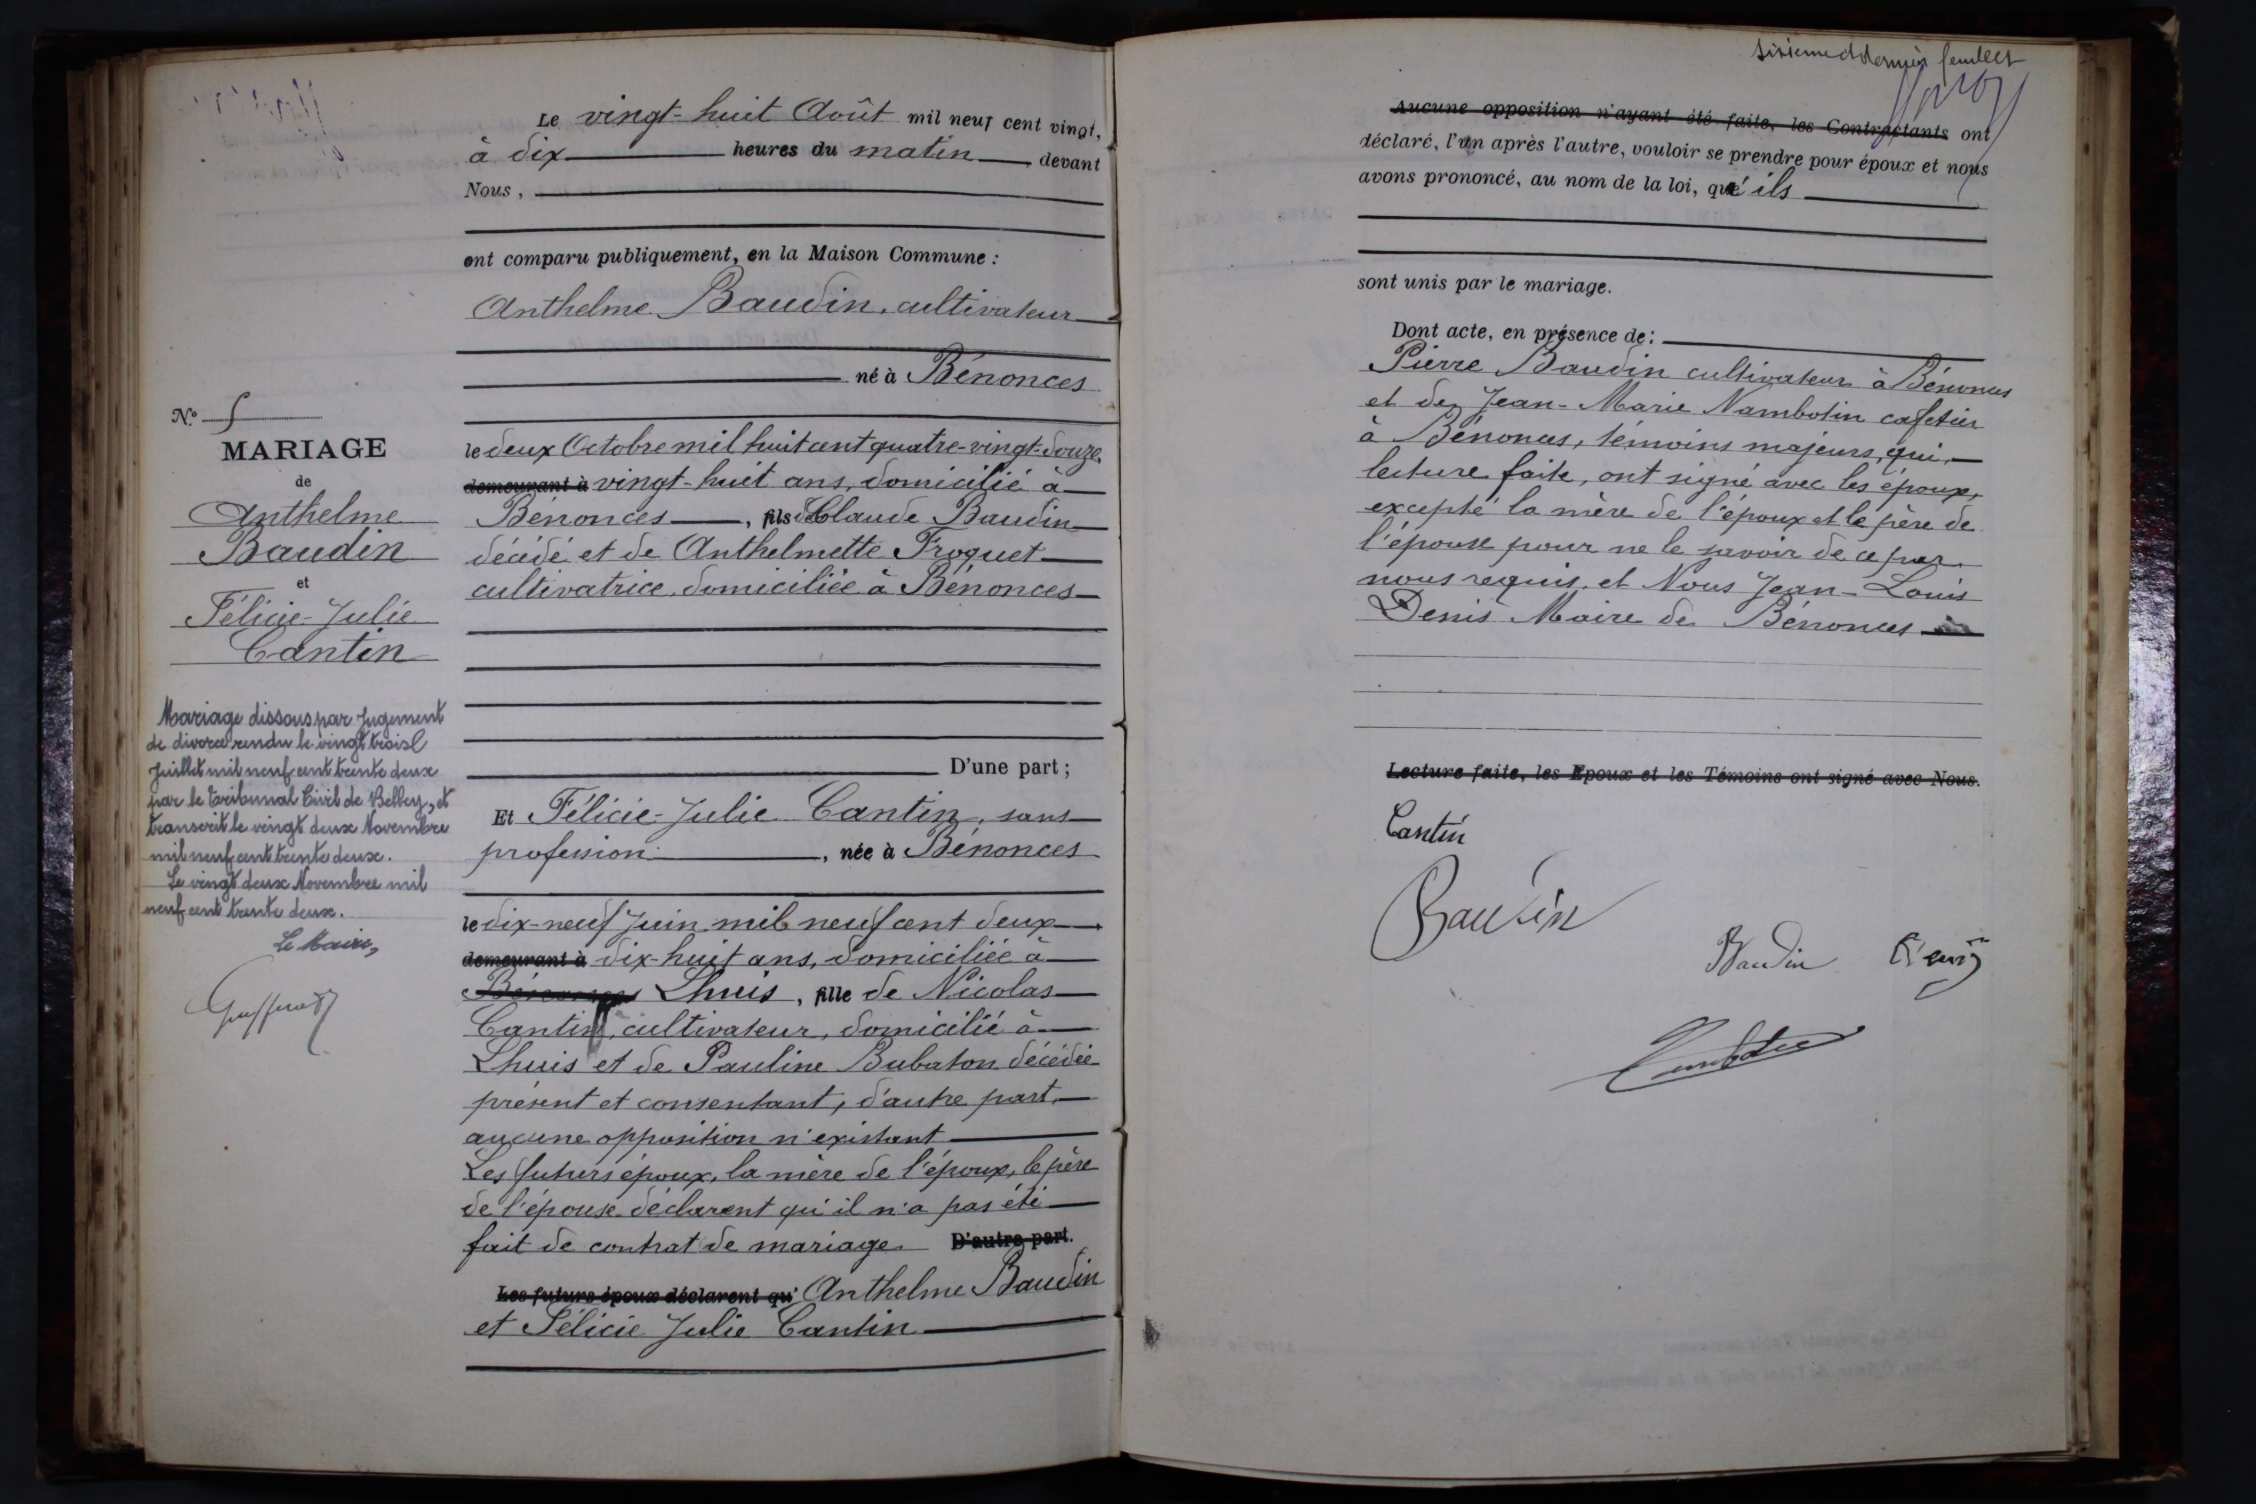 Le vingt-huit Août mil neuf cent vingt,
à dix heures du matin, devant
Nous,
ont comparu publiquement, en la Maison Commune :
Anthelme Baudin, cultivateur
né à Bénonces
le deux Octobre mil huit cent quatre-vingt-douze,
demeurant à vingt-huit ans, domicilié à
Bénonces, fils de Claude Baudin
décédé et de Anthelmette Froquet
cultivatrice, domiciliée à Bénonces
D'une part ;
Et Félicie-Julie Cantin, sans
profession, née à Bénonces
le dix-neuf Juin mil neuf cent deux
demeurant à dix-huit ans, domiciliée à
Bénonces Lhuis, fille de Nicolas
Cantin, cultivateur, domicilié à
Lhuis et de Pauline Bubaton décédée
présent et consentant, d'autre part
aucune opposition n'existant
Les futurs époux, la mère de l'époux, le père
de l'épouse déclarent qu'il n'a pas été
fait de contrat de mariage. D'autre part.
Les futurs époux déclarent qu' Anthelme Baudin
et Félicie Julie Cantin
N.º 5
MARIAGE
de
Anthelme
Baudin
et
Félicie-Julie
Cantin
Mariage dissous par Jugement
de divorce rendu le vingt trois
Juillet mil neuf cent trente deux
par le Tribunal Civil de Belley, et
transcrit le vingt deux Novembre
mil neuf cent trente deux.
Le vingt deux Novembre mil
neuf cent trente deux.
Le Maire,
sixième et dernier feuillet
Aucune opposition n'ayant été faite, les Contractants ont
déclaré, l'un après l'autre, vouloir se prendre pour époux et nous
avons prononcé, au nom de la loi, qu'ils
sont unis par le mariage.
Dont acte, en présence de :
Pierre Baudin cultivateur à Bénonces
et de Jean-Marie Nambotin cafetier
à Bénonces, témoins majeurs, qui,
lecture faite, ont signé avec les époux,
excepté la mère de l'époux et le père de
l'épouse pour ne le savoir de ce par
nous requis, et Nous Jean-Louis
Denis Maire de Bénonces
Lecture faite, les Epoux et les Témoins ont signé avec Nous.
Cantin
Baudin
Baudin Denis